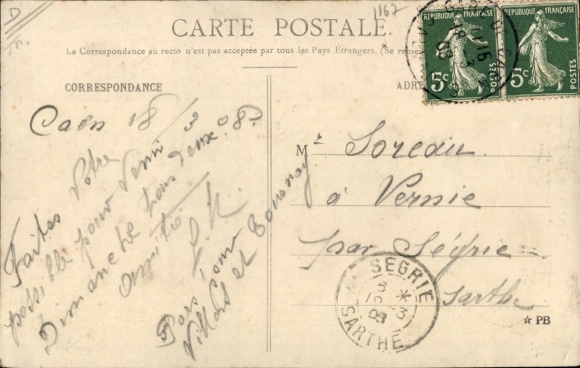 D
1167
CARTE POSTALE.
La Correspondance au recto n'est pas acceptée par tous les Pays Etrangers. (Se rense
CORRESPONDANCE
ADRE
RÉPUBLIQUE FRANÇAISE
5c
POSTES
RÉPUBLIQUE FRANÇAISE
5c
POSTES
Caen 18/3 08.
Faites votre
possible pour venir
Dimanche tous deux
Amitié
Mr Soreau
à Vernie
par Ségrie
Sarthe
SEGRIE
SARTHE
★ PB